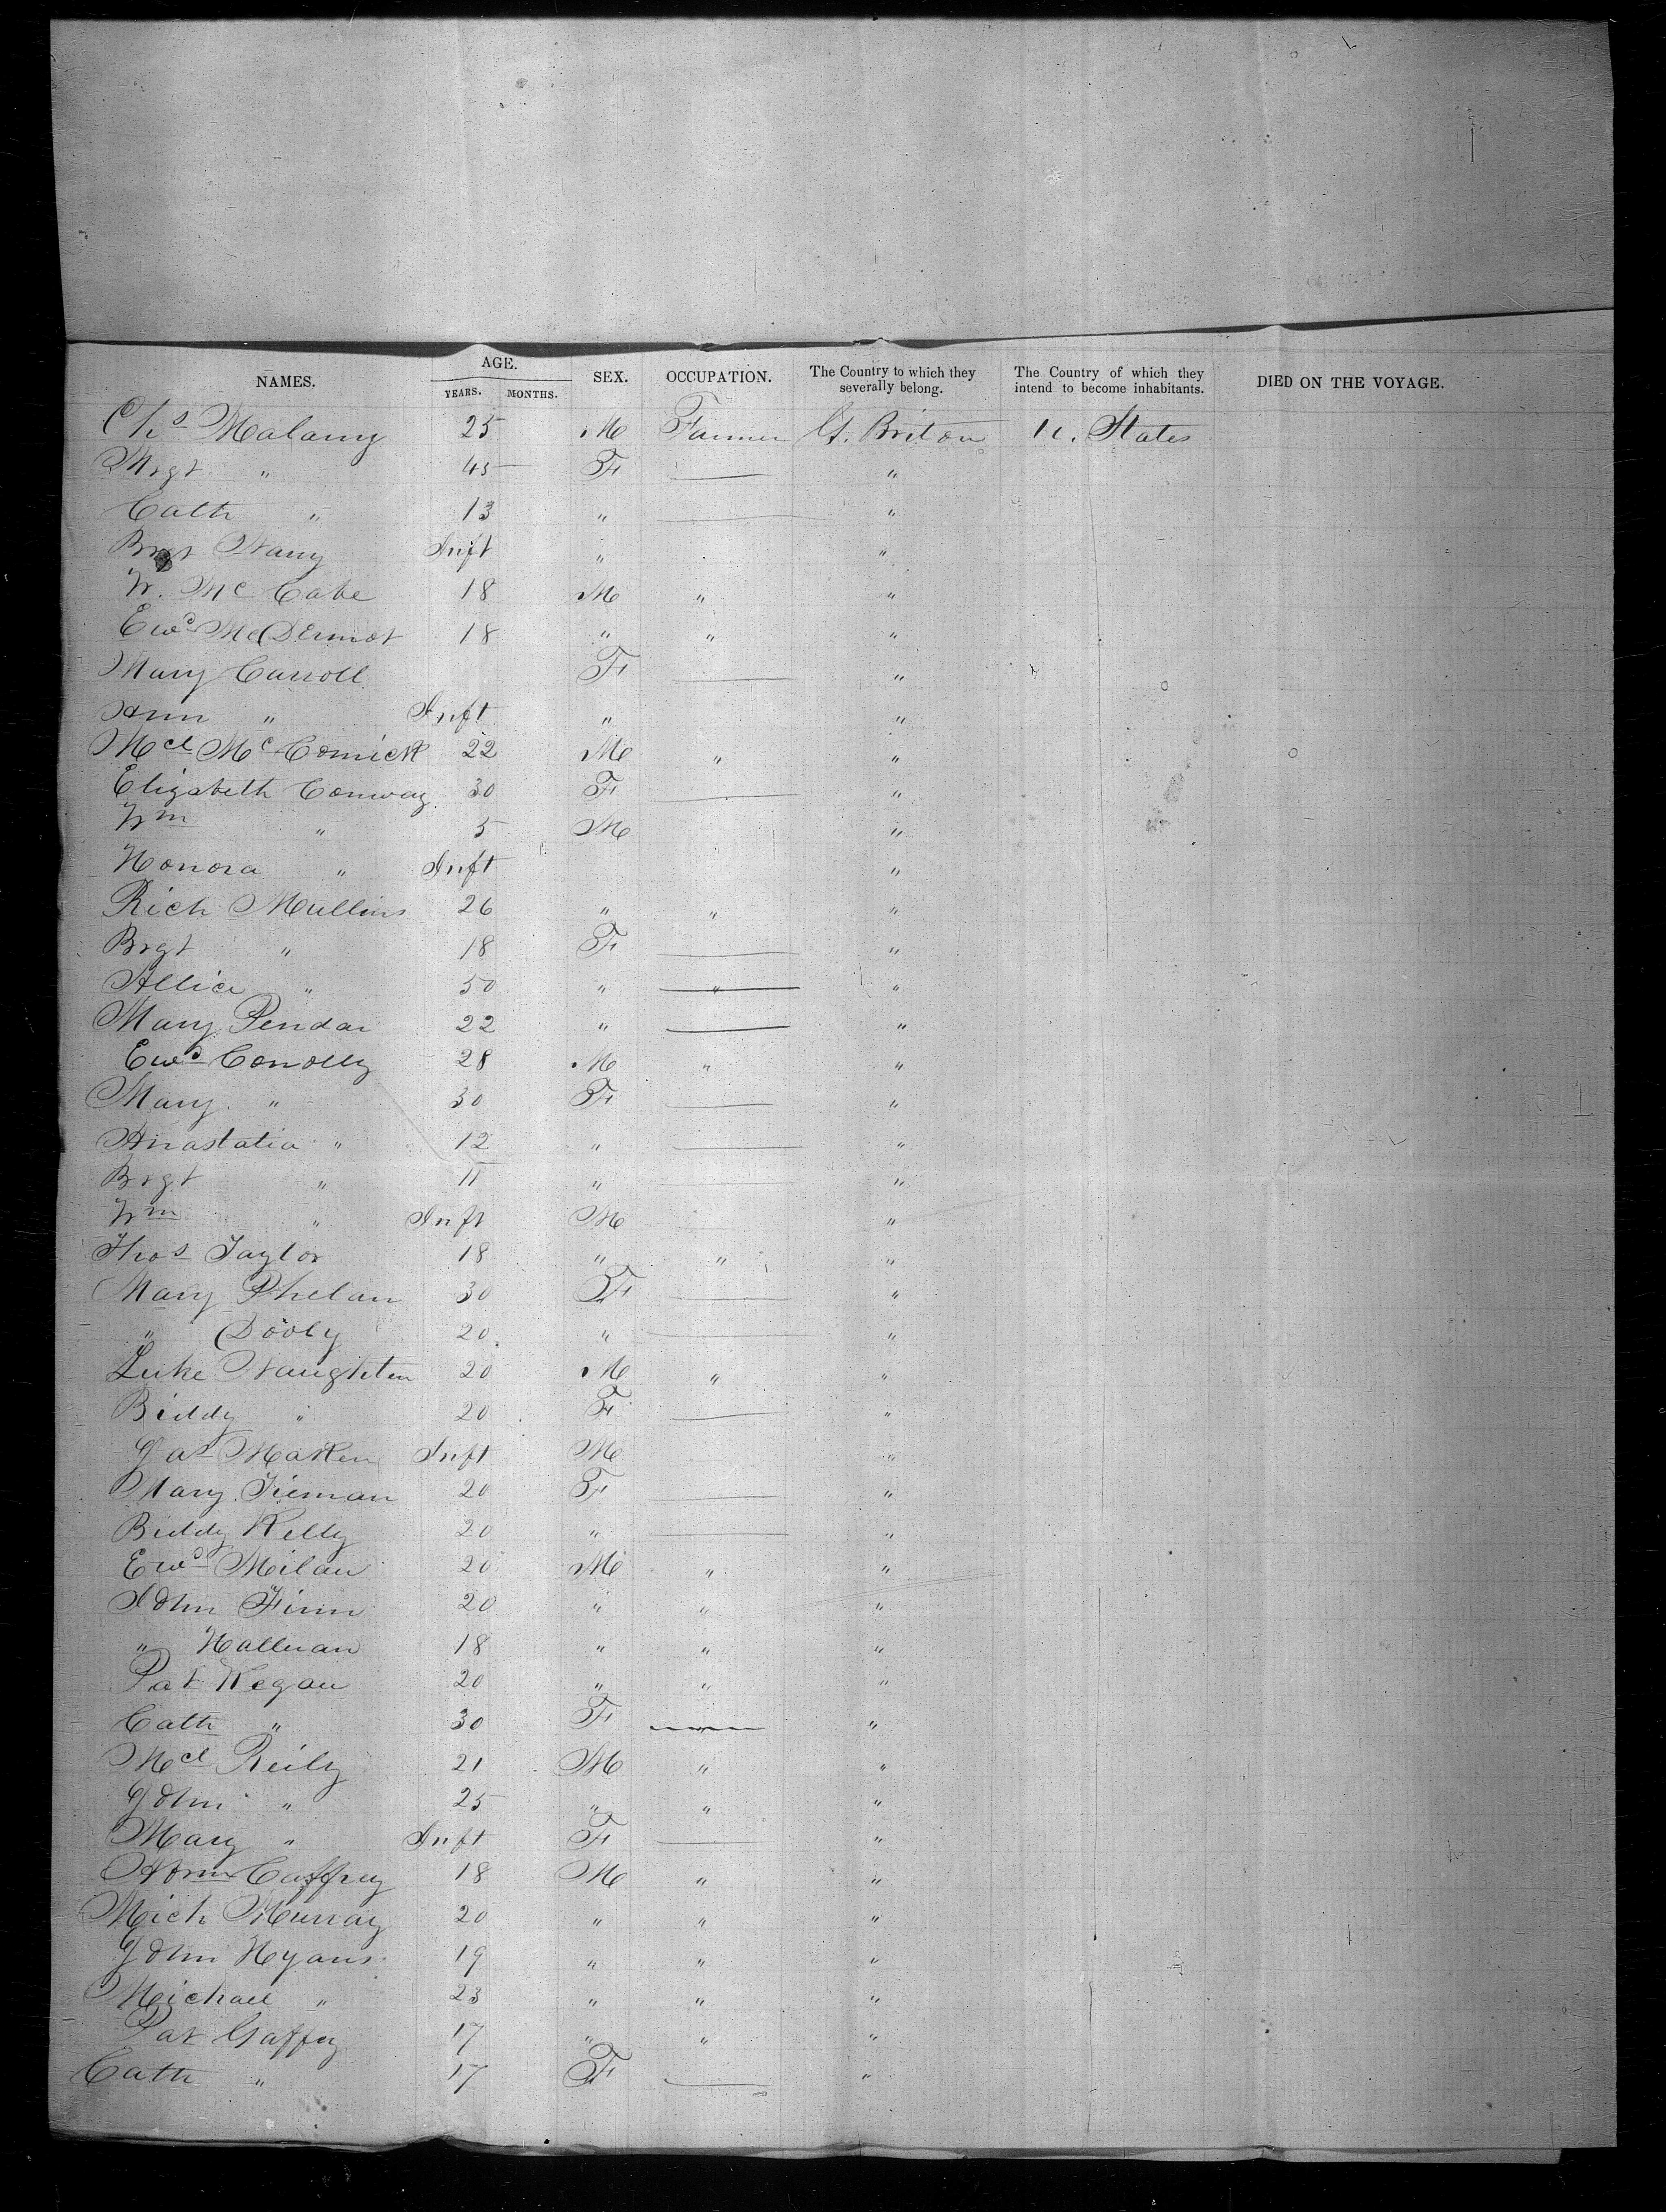 NAMES. AGE. YEARS. MONTHS. SEX. OCCUPATION. The Country to which they severally belong. The Country of which they intend to become inhabitants. DIED ON THE VOYAGE.
Chs Malamy 25 M Farmer Gt. Briton U. States
Mrgt " 45 F "
Cath " 13 " "
Brgt Nany Inft " "
W. McCabe 18 M " "
Ewd McDermot 18 " " "
Mary Carroll F "
Ann " Inft " "
Mcl McComick 22 M " "
Elizabeth Conway 30 F "
Wm " 5 M "
Honora " Inft "
Rich Mullins 26 " " "
Brgt " 18 F "
Allice " 50 " " "
Mary Pendar 22 " "
Ewd Conolly 28 M " "
Mary " 30 F "
Anastatia " 12 " "
Brgt " 11 " "
Wm " Inft M "
Thos Taylor 18 " " "
Mary Phelan 30 F "
" Dooly 20 " "
Luke Naughten 20 M " "
Biddy " 20 F "
Jas Maken Inft M "
Mary Tiernan 20 F "
Biddy Kelly 20 " "
Ewd Milan 20 M " "
John Finn 20 " " "
" Hallnan 18 " " "
Pat Kegan 20 " " "
Cath " 30 F "
Mcl Reily 21 M " "
John " 25 " " "
Mary " Inft F "
Caffrey 18 M " "
Mich Murray 20 " " "
John Hyans 19 " " "
Michael " 23 " " "
Pat Gaffey 17 " " "
Cath " 17 F "